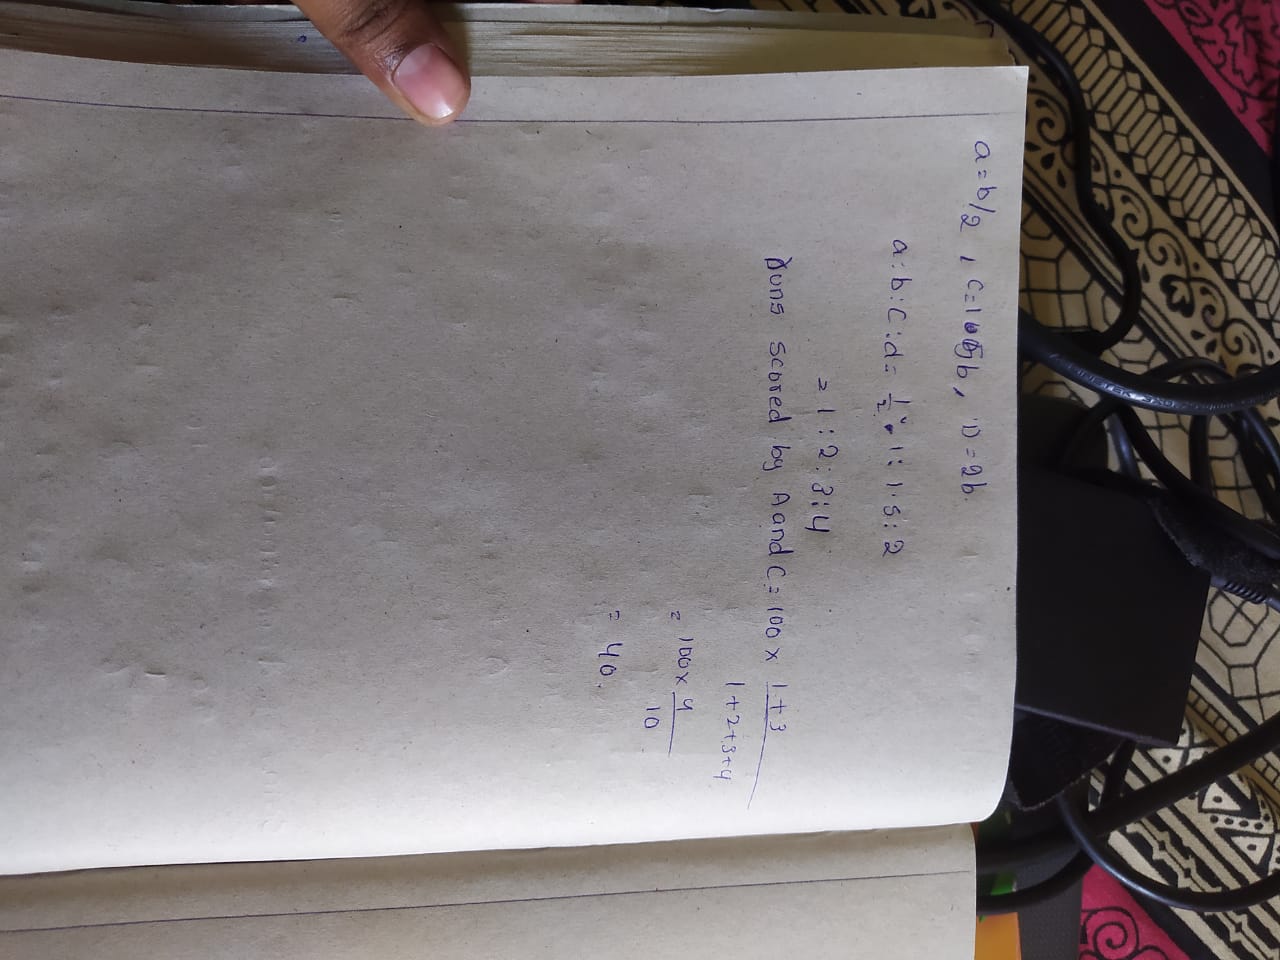 a = b/2 , c = 1.5b, D = 2b
a : b : c : d = 1/2 : 1 : 1.5 : 2
= 1 : 2 : 3 : 4
runs scored by A and C = 100 x 1+3
1+2+3+4
= 100 x 4
10
= 40.